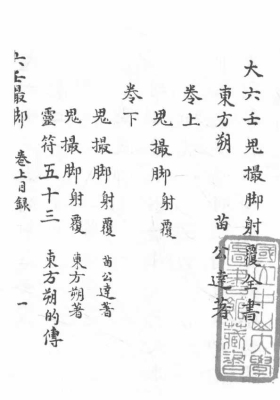 大六壬鬼撮脚射覆全書
東方朔 苗公達著
卷上
鬼撮脚射覆
卷下
鬼撮脚射覆 苗公達著
鬼撮脚射覆 東方朔著
靈符五十三 東方朔的傳
六壬最脚 卷上目録 一
國立中山大學圖書館藏書